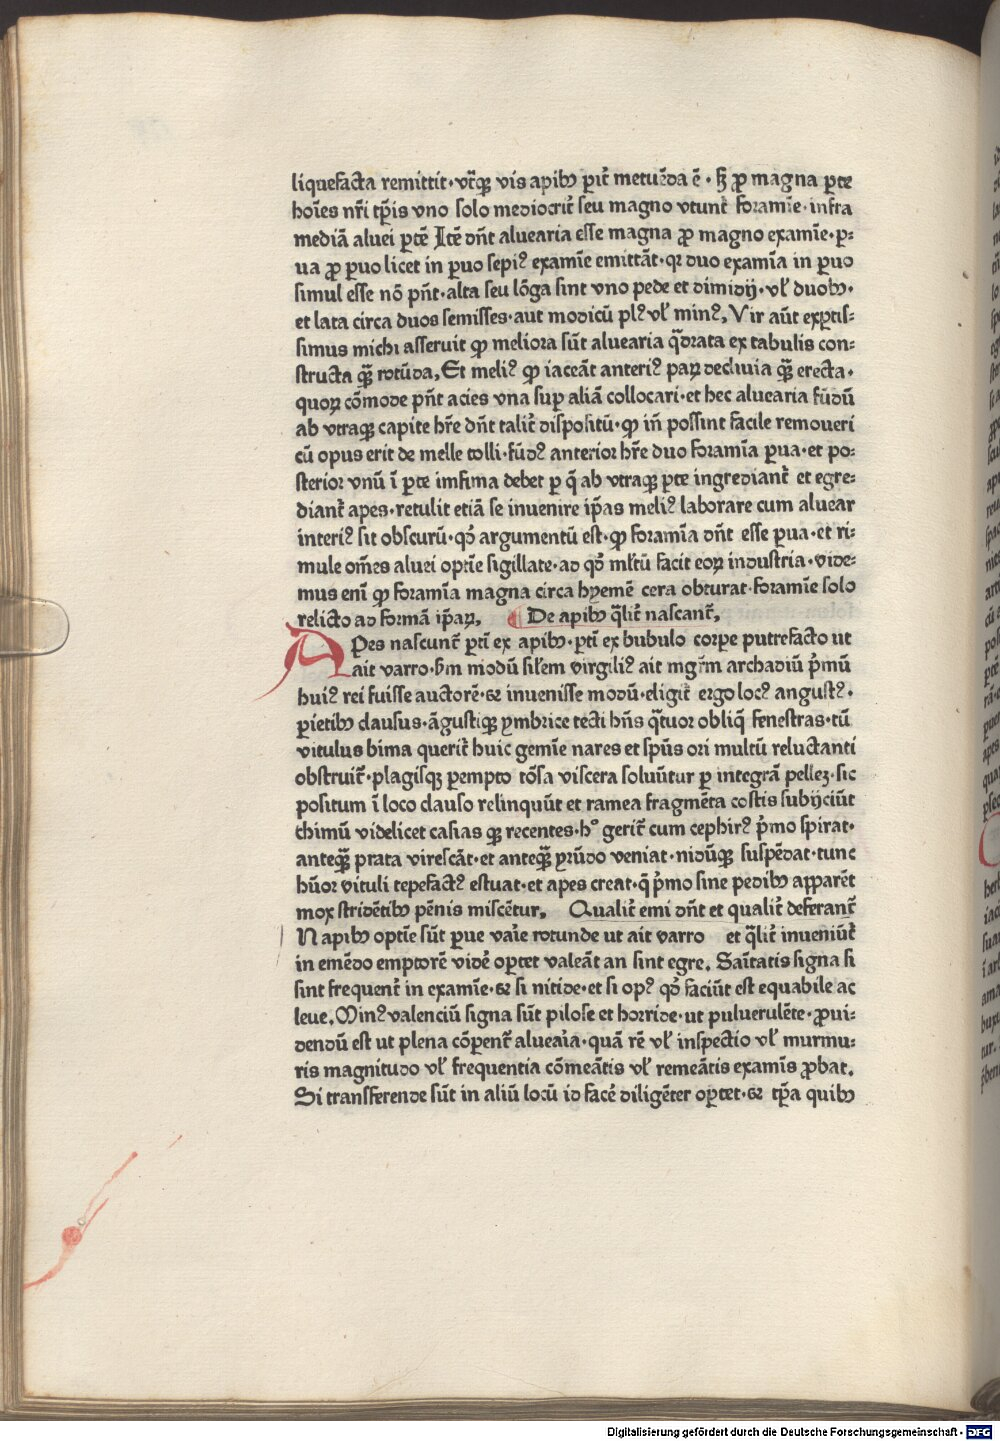 liquefacta remittit·vtꝗꝫ vis apibꝫ ꝑit̉ metuēda ē·sꝫ ꝓ magna ꝑte
hoīes nr̄i tꝑis vno solo mediocrit̉ seu magno vtunt̉ foramīe·infra
mediā aluei ꝑtē Itē dn̄t aluearia esse magna ꝓ magno examīe·ꝑ:
ua ꝓ ꝑuo licet in ꝑuo sepiꝰ examīe emittāt·qꝛ duo examīa in ꝑuo
simul esse nō pn̄t·alta seu lōga sint vno pede et dimidij·vl̉ duobꝫ·
et lata circa duos semisses·aut modicū plꝰ vl̉ minꝰ, Vir aūt exꝑtis:
simus michi asseruit ꝙ meliora sūt aluearia q̄drata ex tabulis con:
structa qꝫ̄ rotūda, Et meliꝰ ꝙ iaceāt anteriꝰ paꝝ decliuia qꝫ̄ erecta·
quoꝝ cōmode pn̄t acies vna suꝑ aliā collocari·et hec aluearia fūdū
ab vtraqꝫ capite hr̄e dn̄t talit̉ dispositū·ꝙ in̄ possint facile remoueri
cū opus erit de melle tolli·fūdꝰ anterior hr̄e duo foramīa ꝑua·et po:
sterior vnū ī ꝑte imfima debet ꝑ q̄ ab vtraqꝫ ꝑte ingrediant̉ et egre:
diant̉ apes·retulit etiā se inuenire ip̄as meliꝰ laborare cum aluear
interiꝰ sit obscurū·qd̓ argumentū est·ꝙ foramīa dn̄t esse ꝑua·et ri:
mule om̄es aluei optīe sigillate·ad qd̓ ml̉tū facit eoꝝ industria·vide:
mus enī ꝙ foramīa magna circa hyemē cera obturat·foramīe solo
relicto ad formā ip̄aꝝ, ¶ De apibꝫ q̄lit̉ nascant̉,
Apes nascunt̉ ꝑtỉ ex apibꝫ·ꝑtỉ ex bubulo corꝑe putrefacto ut
ait varro·sꝫm modū sil̉em virgiliꝰ ait mgr̄m archadiū p̓mū
huiꝰ rei fuisse auctorē·⁊ inuenisse modū·eligit̉ ergo locꝰ angustꝰ·
ꝑietibꝫ clausus·āgustiqꝫ ymbrice tecti hn̄s q̄tuor obliq̄ fenestras·tū
vitulus bima querit̉ huic gemīe nares et spūs ori multū reluctanti
obstruit̉·plagisqꝫ ꝑempto tōsa viscera soluūtur ꝑ integrā pellez·sic
positum ī loco clauso relinquūt et ramea fragmēta costis subijciūt
thimū videlicet casias qꝫ recentes·h° gerit̉ cum cephirꝰ p̓mo spirat·
anteqꝫ̄ prata virescāt·et anteqꝫ̄ yrūdo veniat·nidūqꝫ suspēdat·tunc
hūor vituli tepefactꝰ estuat·et apes creat·q̄ p̓mo sine pedibꝫ apparēt
mox stridētibꝫ pēnis miscētur, Qualit̉ emi dn̄t et qualit̉ deferant̉
N apibꝫ optīe sūt ꝑue vai̓e rotunde ut ait varro et q̄lit̉ inueniūt̉
in emēdo emptorē vide̓ oꝑtet valeāt an sint egre. Sai̓tatis signa si
sint frequent̉ in examīe·⁊ si nitide·et si opꝰ qd̓ faciūt est equabile ac
leue. Minꝰ valenciū signa sūt pilose et horride·ut puluerulēte·ꝓui:
dendū est ut plena cōꝑent̉ alueai̓a·quā rē vl̉ inspectio vl̉ murmu:
ris magnitudo vl̉ frequentia cōmeātis vl̉ remeātis examīs ꝓbat.
Si transferende sūt in aliū locū id face̓ diligēter oꝑtet·⁊ tꝑa quibꝫ
Digitalisierung gefördert durch die Deutsche Forschungsgemeinschaft - DFG